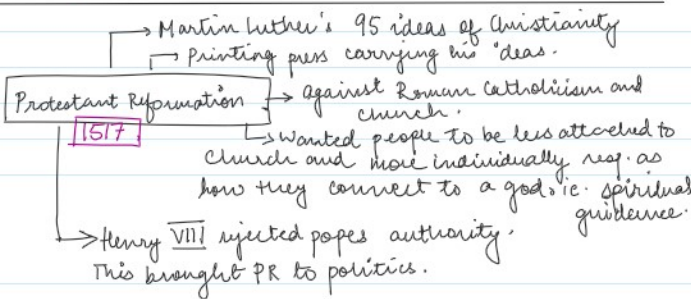 Martin Luther's 95 ideas of Christianity
Printing press carrying his ideas.
Protestant Reformation
1517
against Roman Catholicism and
church.
Wanted people to be less attached to
church and more individually resp. as
how they connect to a god, ie. spiritual
guidence.
Henry VIII rejected popes authority.
This brought PR to politics.